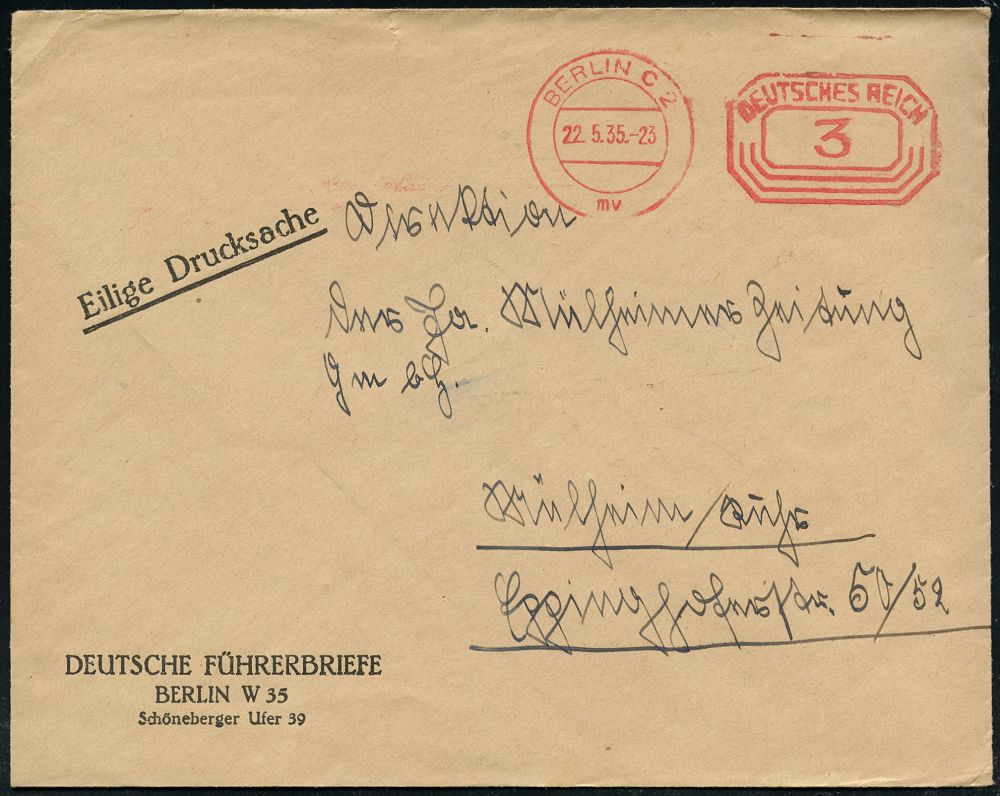 BERLIN C 2
22. 5. 35.-23
mv
DEUTSCHES REICH
3
Eilige Drucksache
Direktion
der Fa. Mülheimer Zeitung
GmbH.
Mülheim/Ruhr
Eppinghoferstr. 50/52
DEUTSCHE FÜHRERBRIEFE
BERLIN W 35
Schöneberger Ufer 39